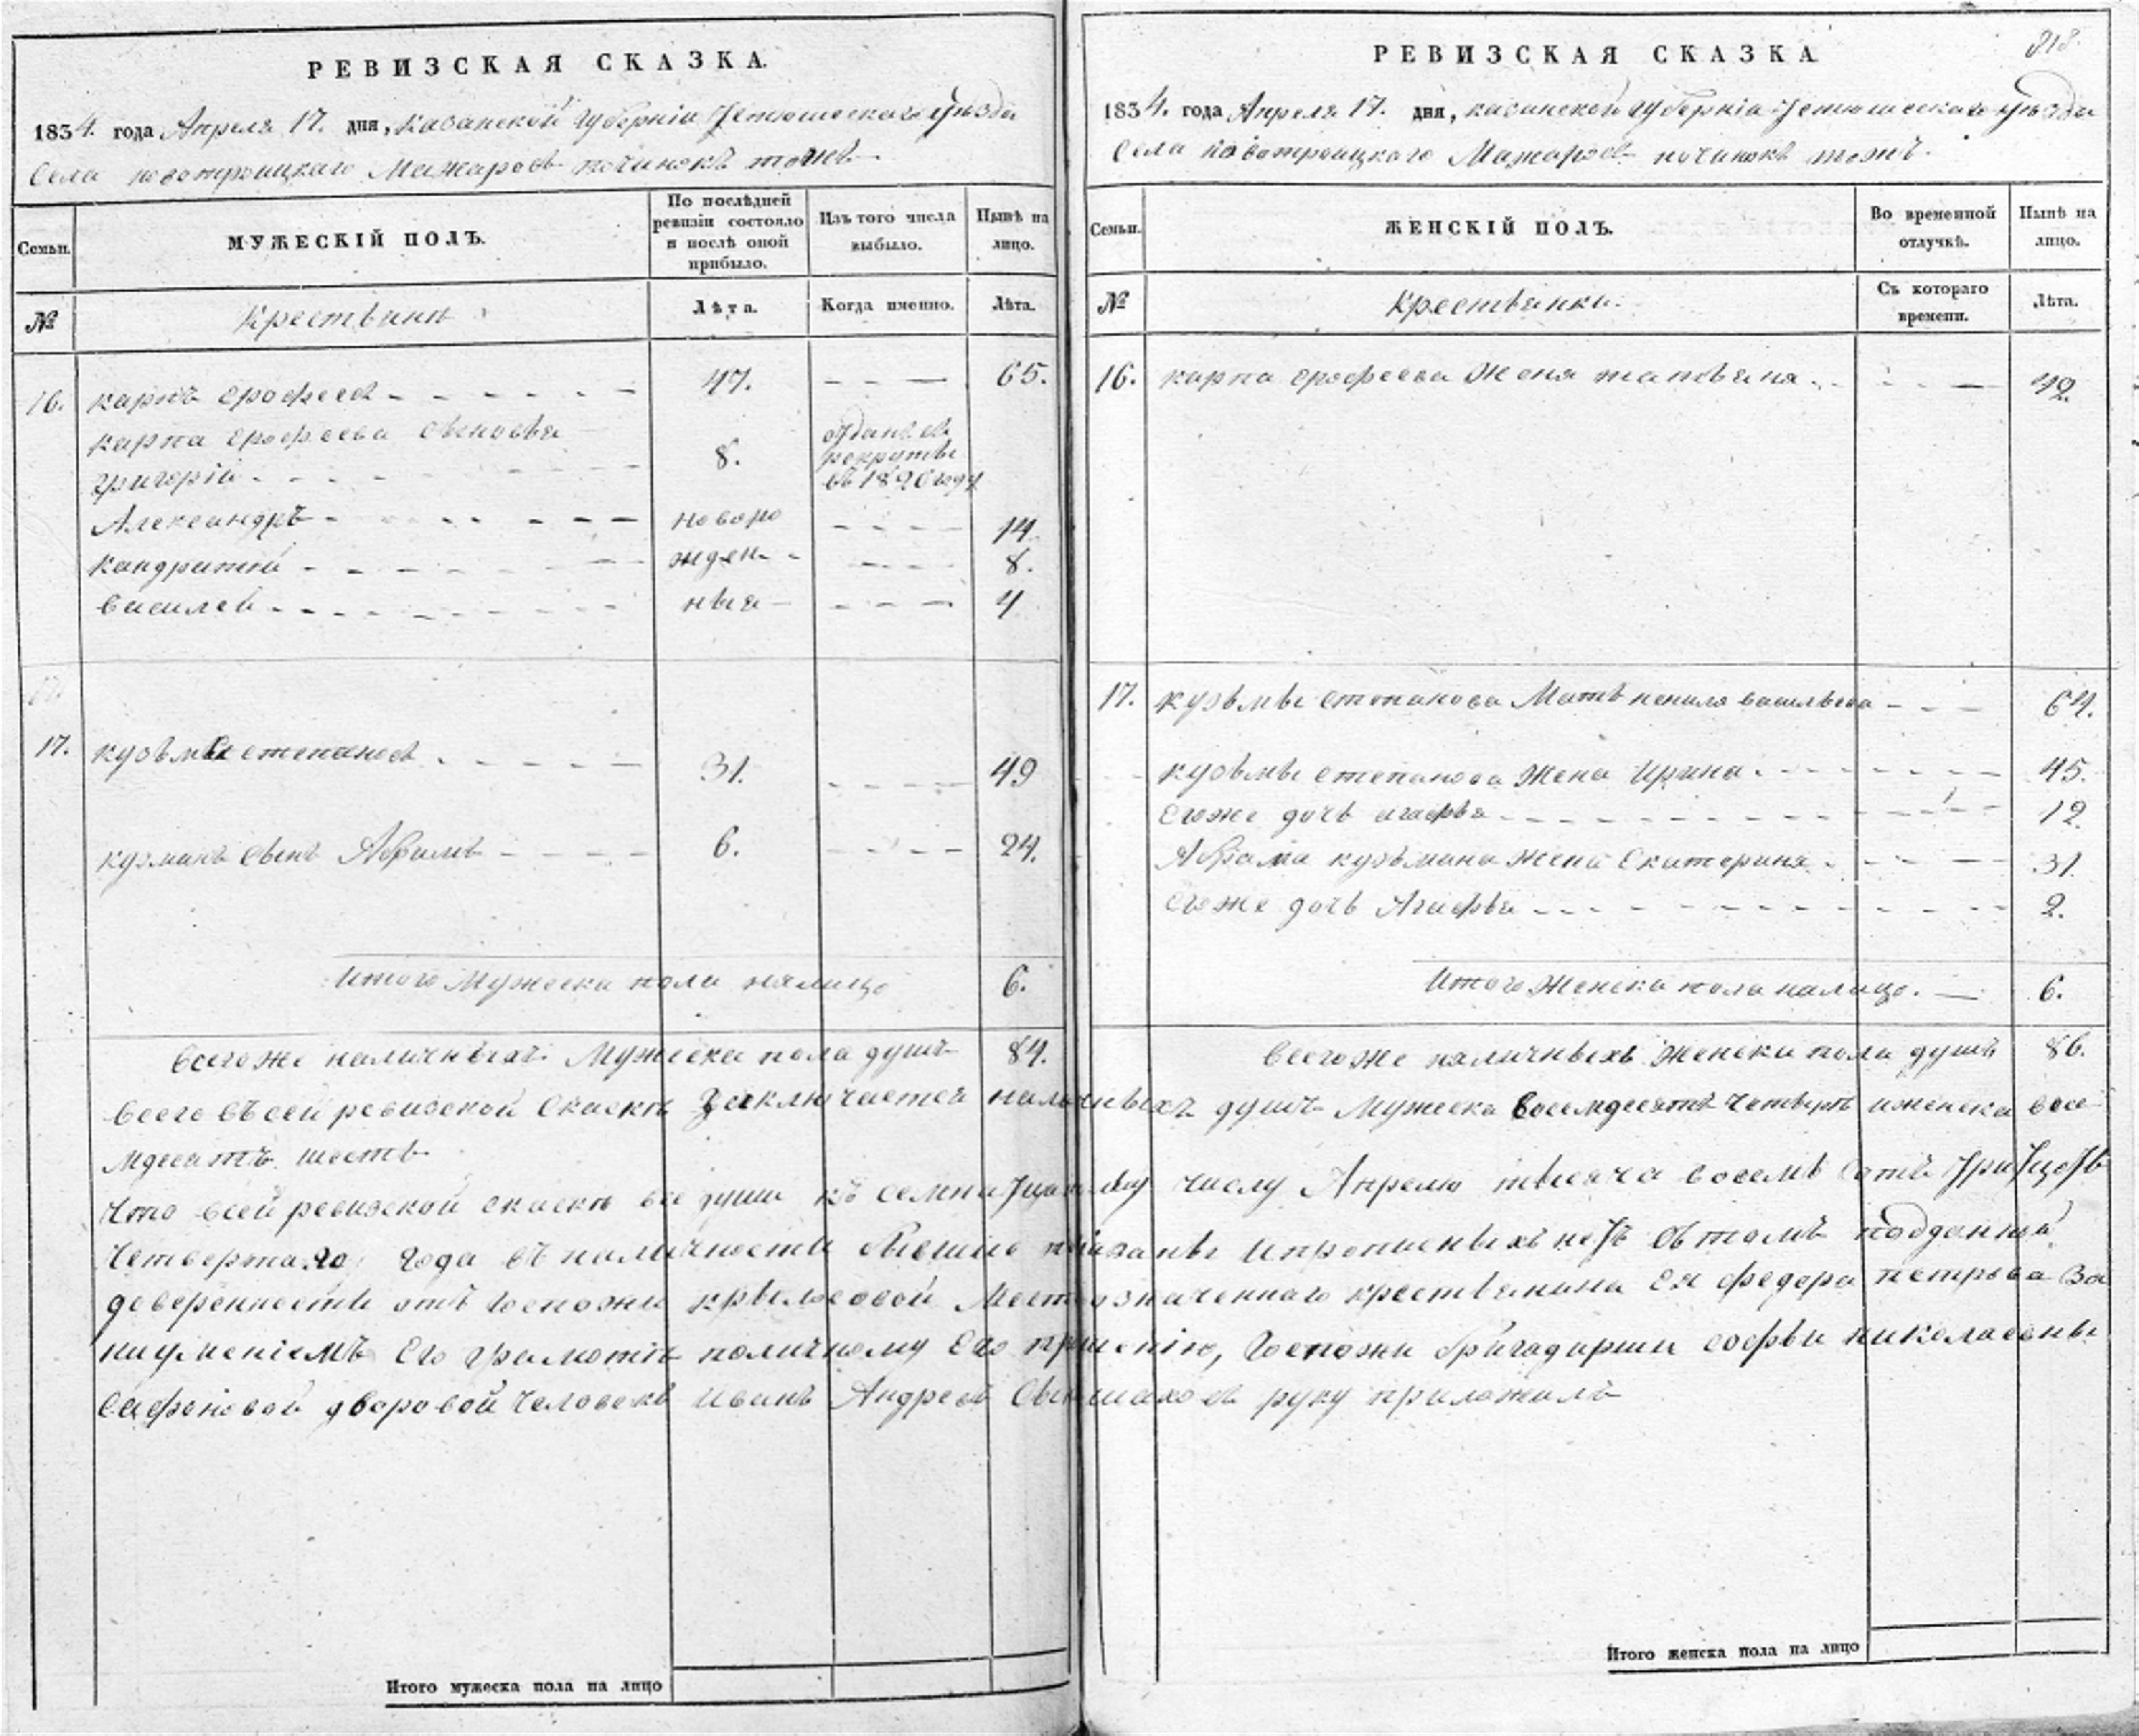 РЕВИЗСКАЯ СКАЗКА.
1834. года Апреля 17. дня, казанской губернiи уезда
Села новотроицкаго Мажаровъ починокъ тожъ
Семьи.
МУЖЕСКIЙ ПОЛЪ.
По послѣдней ревизiи состояло и послѣ оной прибыло.
Изъ того числа выбыло.
Нынѣ на лицо.
№
Крестьяне
Лѣта.
Когда именно.
Лѣта.
16. карпъ ерофеевъ 47. 65.
карпа ерофеева сыновья
григорiй 8. отданъ въ рекруты въ 1820 году
Александръ новоро 14.
кандратiй жден 8.
василей ныя 4
17. кузьма степановъ 31. 49
кузминъ сынъ Абрамъ 6. 24.
Итого Мужеска пола налицо 6.
всегоже наличныхъ Мужеска пола душъ 84.
РЕВИЗСКАЯ СКАЗКА
818.
1834. года Апреля 17. дня, казанской губернiи уезда
Села новотроицкаго Мажаровъ починокъ тожъ.
Семьи.
ЖЕНСКIЙ ПОЛЪ.
Во временной отлучкѣ.
Нынѣ на лицо.
№
Крестьянки.
Съ котораго времени.
Лѣта.
16. карпа ерофеева Жена 42.
17. кузьмы степанова Мать ненила васильева 64.
кузьмы степанова Жена Ирина 45.
Егоже дочь агафья 12.
Абрама кузьмина жена Екатерина 31.
Егоже дочь Агафья 2.
Итого Женска пола налицо. 6.
Всегоже наличныхъ Женска пола душъ 86.
всего въ сей ревизской Скаскѣ заключается наличныхъ душъ Мужеска восемдесятъ четыре иженска восе
мдесятъ шесть
Что всей ревизской скаскѣ все души къ семнатцатому числу Апреля тысяча восемь сотъ тритцать
Четвертаго года въ наличности показаны ипрописныхъ нетъ въ томъ поданной
доверенности отъ Госпожи крестьянина Ея федора петрова за
неуменiемъ Его грамоти поличному Его прошенiю, Госпожи бригадирши софьи николаевны
Сафоновой дворовой Человекъ Иванъ Андреевъ руку приложилъ
Итого мужеска пола на лицо
Итого женска пола на лицо